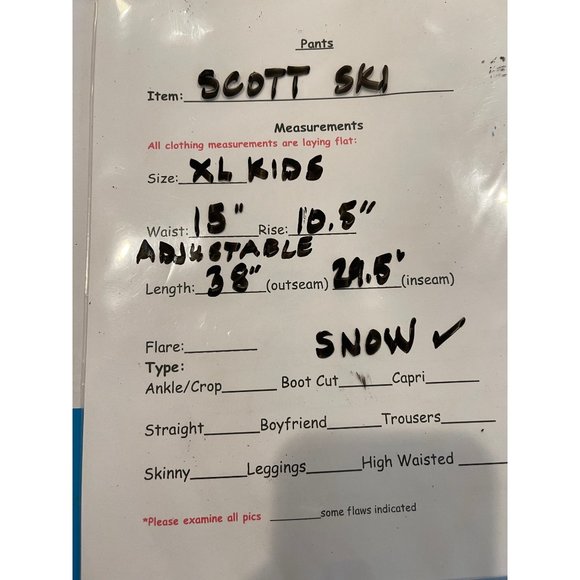 Pants
Item: SCOTT SKI
Measurements
All clothing measurements are laying flat:
Size: XL KIDS
Waist: 15" Rise: 10.5"
ADJUSTABLE
Length: 38" (outseam) 29.5" (inseam)
Flare:
SNOW ✓
Type:
Ankle/Crop Boot Cut Capri
Straight Boyfriend Trousers
Skinny Leggings High Waisted
*Please examine all pics some flaws indicated